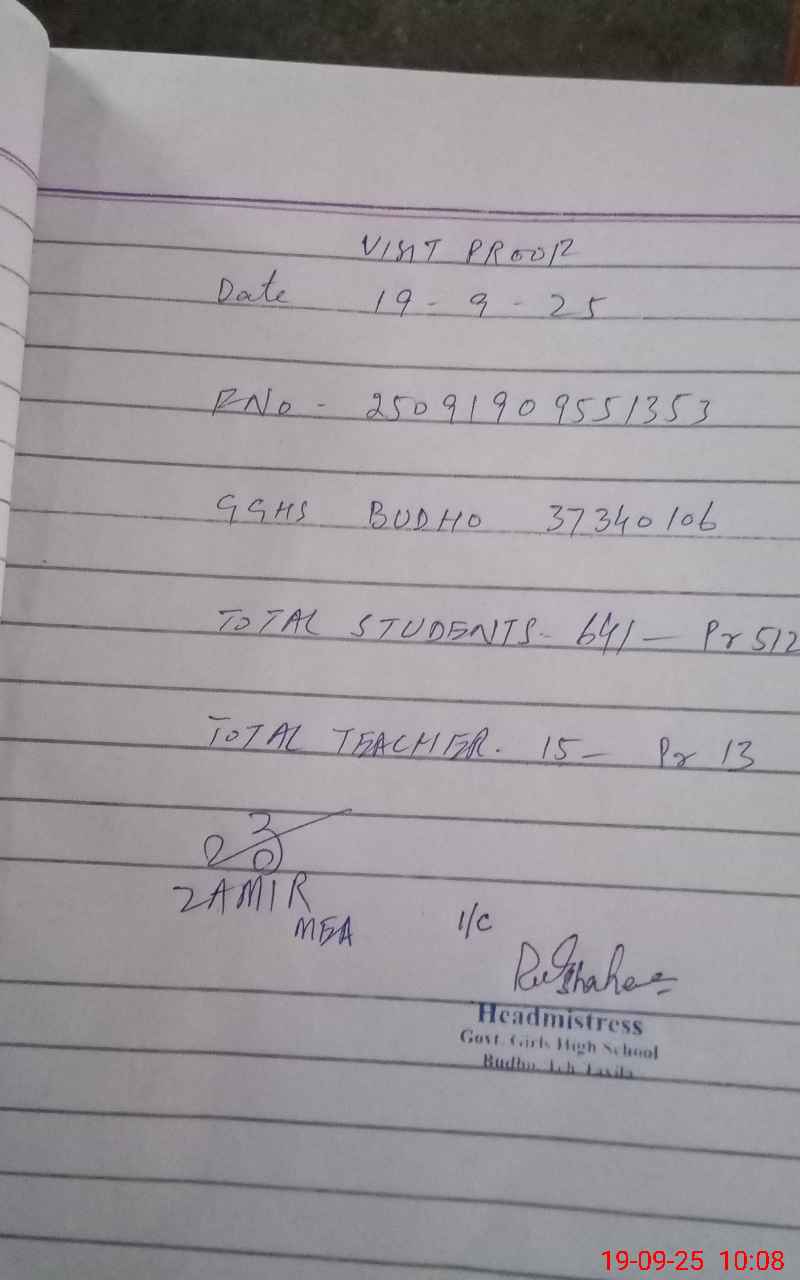 VISIT PROOF
Date 19-9-25
RNo - 25091909551353
GGHS BUDHO 37340106
TOTAL STUDENTS- 641 - Pr 512
TOTAL TEACHER. 15 - Pr 13
ZAMIR
MEA
I/C
Headmistress
Govt. Girls High School
Budho Teh Taxila
19-09-25 10:08